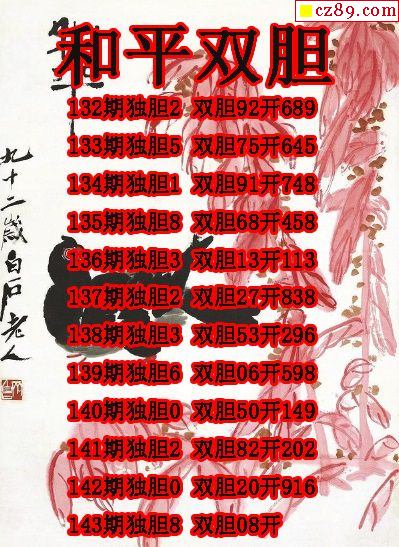 cz89.com
和平双胆
132期独胆2 双胆92开689
133期独胆5 双胆75开645
134期独胆1 双胆91开748
135期独胆8 双胆68开458
136期独胆3 双胆13开113
137期独胆2 双胆27开838
138期独胆3 双胆53开296
139期独胆6 双胆06开598
140期独胆0 双胆50开149
141期独胆2 双胆82开202
142期独胆0 双胆20开916
143期独胆8 双胆08开
九十二岁白石老人